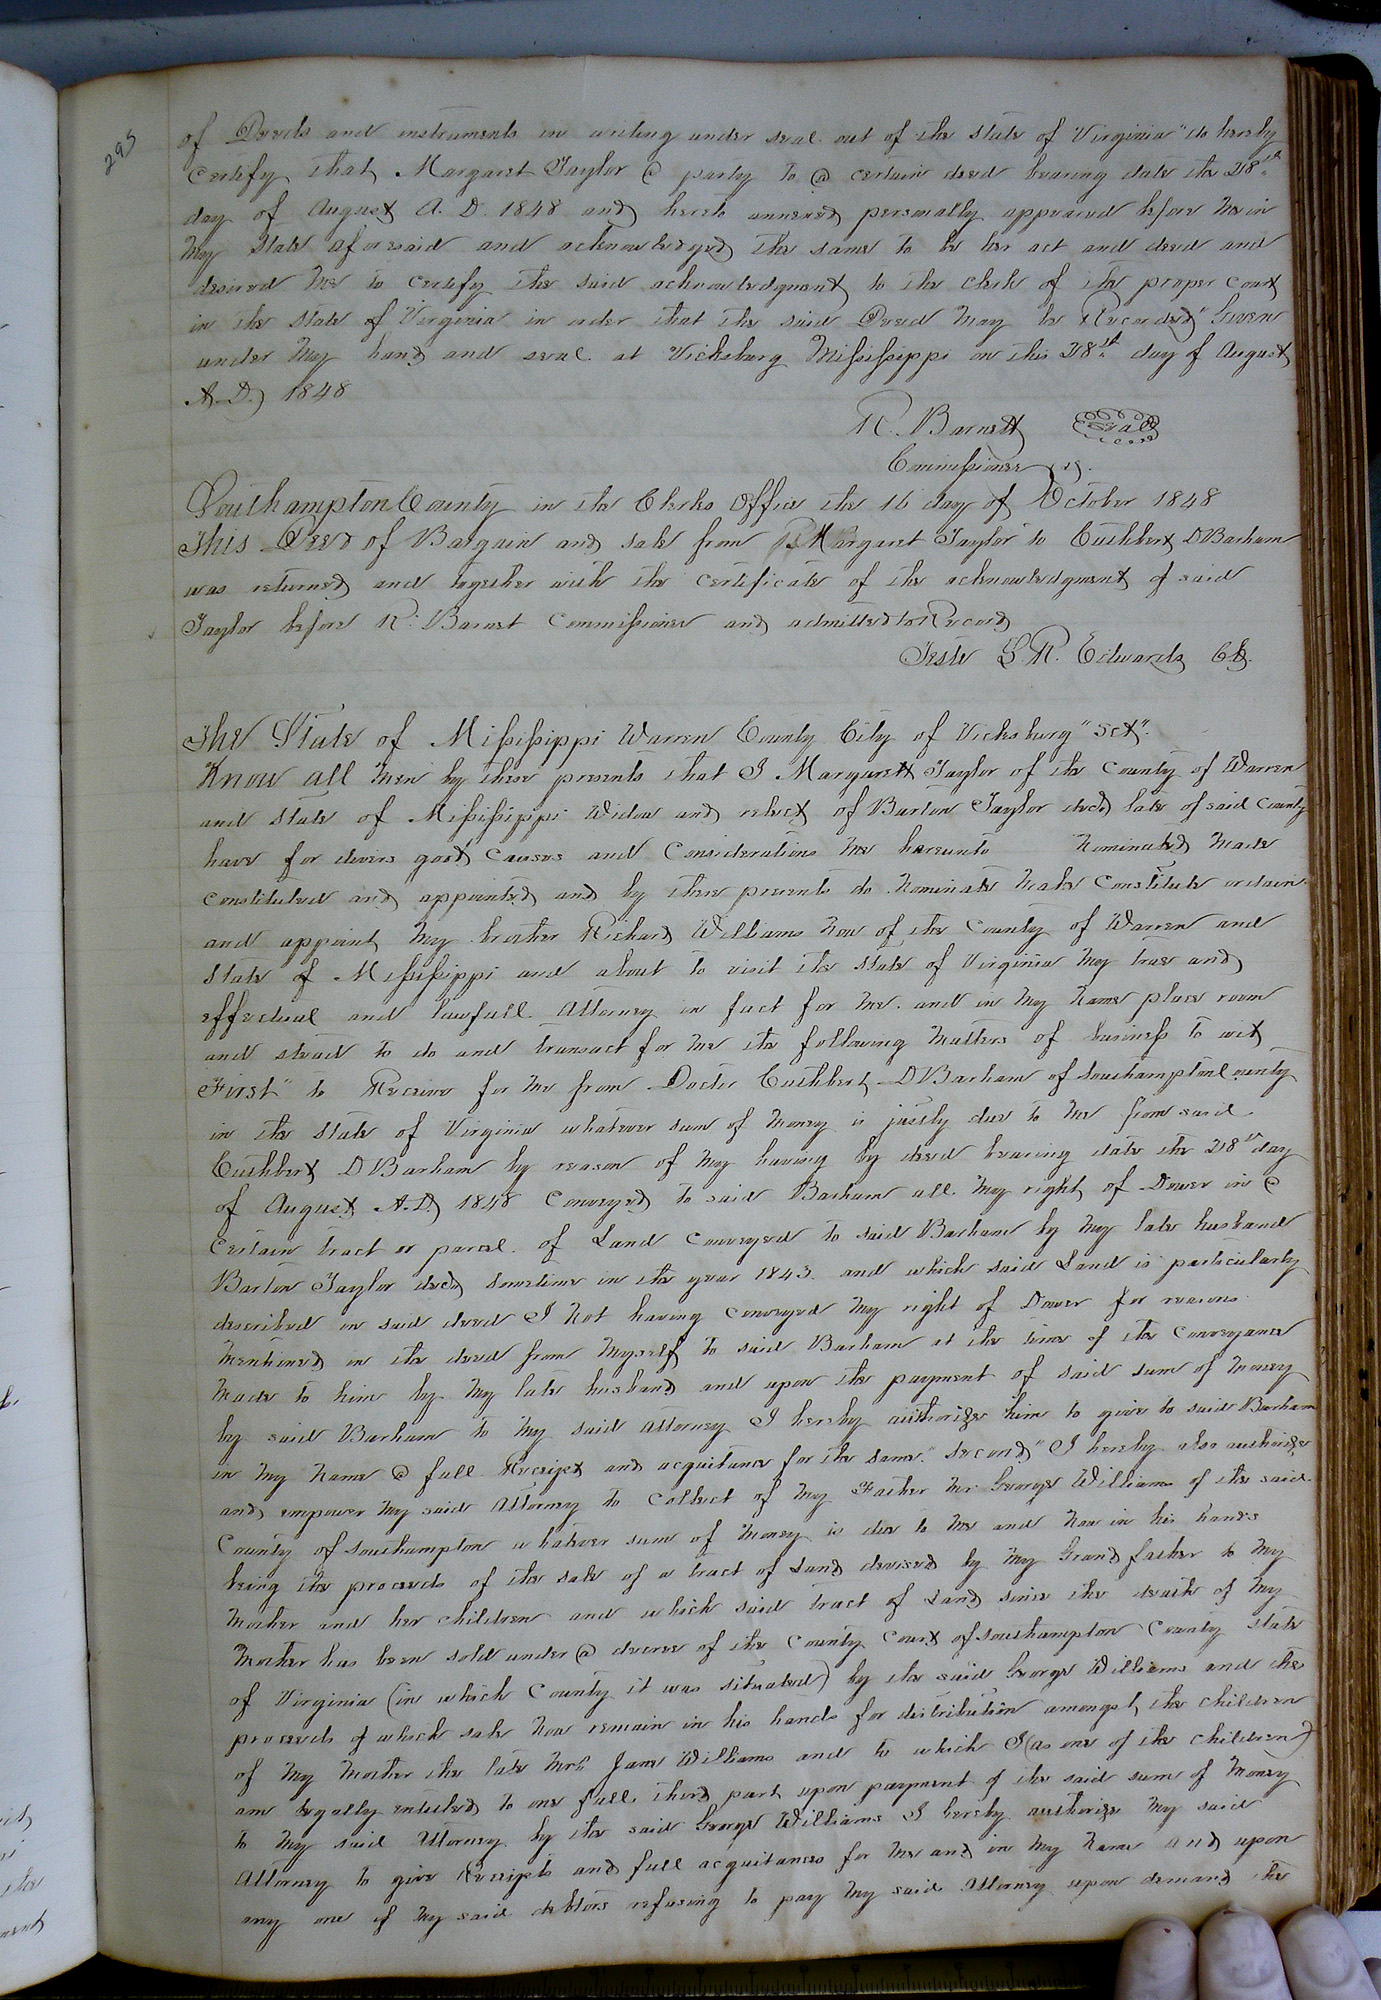 293
of Deeds and instruments in writing under seal out of the state of Virginia" do hereby
Certify that Margaret Taylor @ party to @ certain deed bearing date the 28th
day of August A. D. 1848 and hereto annexed personally appeared before me in
My State aforesaid and acknowledged the same to be her act and deed and
desired Me to certify the said acknowledgment to the clerk of the proper court
in the State of Virginia in order that the said Deed May be Recorded" Given
under My hand and seal at Vicksburg Mississippi on this 28th day of August
A.D. 1848
R. Barnett Seal
Commissioner
Southampton County in the Clerks Office the 16 day of October 1848
This Deed of Bargain and sale from Margaret Taylor to Cuthbert D Barham
was returned and together with the certificate of the acknowledgment of said
Taylor before R. Barnet Commissioner and admitted to Record
Teste L R. Edwards Clk.
The State of Mississippi Warren County City of Vicksburg "Sct".
Know all Men by these presents that I Margarett Taylor of the County of Warren
and State of Mississippi Widow and relect of Barton Taylor decd late of said County
have for divers good Causes and Considerations Me hereunto Nominated Made
Constituted and appointed and by these presents do Nominate Make Constitute ordain
and appoint My brother Richard Williams Now of the County of Warren and
State of Mississippi and about to visit the State of Virginia My true and
effectual and lawfull Attorney in fact for Me. and in My Name place room
and stead to do and transact for Me the following Matters of business to wit
"First" to Receive for Me from Doctor Cuthbert D Barham of Southampton County
in the State of Virginia whatever sum of Money is justly due to Me from said
Cuthbert D Barham by reason of My having by deed bearing date the 28th day
of August A.D. 1848 Conveyed to said Barham all My right of Dower in @
Certain tract or parcel of Land Conveyed to said Barham by My late husband
Barton Taylor decd sometime in the year 1843. and which said Land is particularly
described in said deed I Not having Conveyed My right of Dower for reasons
Mentioned in the deed from Myself to said Barham at the time of the Conveyance
Made to him by My late husband and upon the payment of said sum of Money
by said Barham to My said Attorney I hereby authorize him to give to said Barham
in My Name @ full Receipt and acquitance for the same." Second" I hereby also authorize
and empower My said Attorney to Collect of My Father Mr George Williams of the said
County of Southampton whatever sum of Money is due to Me and Now in his hands
being the proceeds of the sale of a tract of Land devised by My Grand father to My
Mother and her children and which said tract of Land since the death of My
Mother has been sold under @ decree of the County Court of Southampton County State
of Virginia (in which County it was situated) by the said George Williams and the
proceeds of which sale Now remain in his hands for distribution amongst the children
of My Mother the late Mrs Jane Williams and to which I (as one of the children)
am legally entitled to one full third part upon payment of the said sum of Money
to My said Attorney by the said George Williams I hereby authorize My said
Attorney to give Receipts and full acquitances for Me and in My Name and upon
any one of My said debtors refusing to pay My said Attorney upon demand the